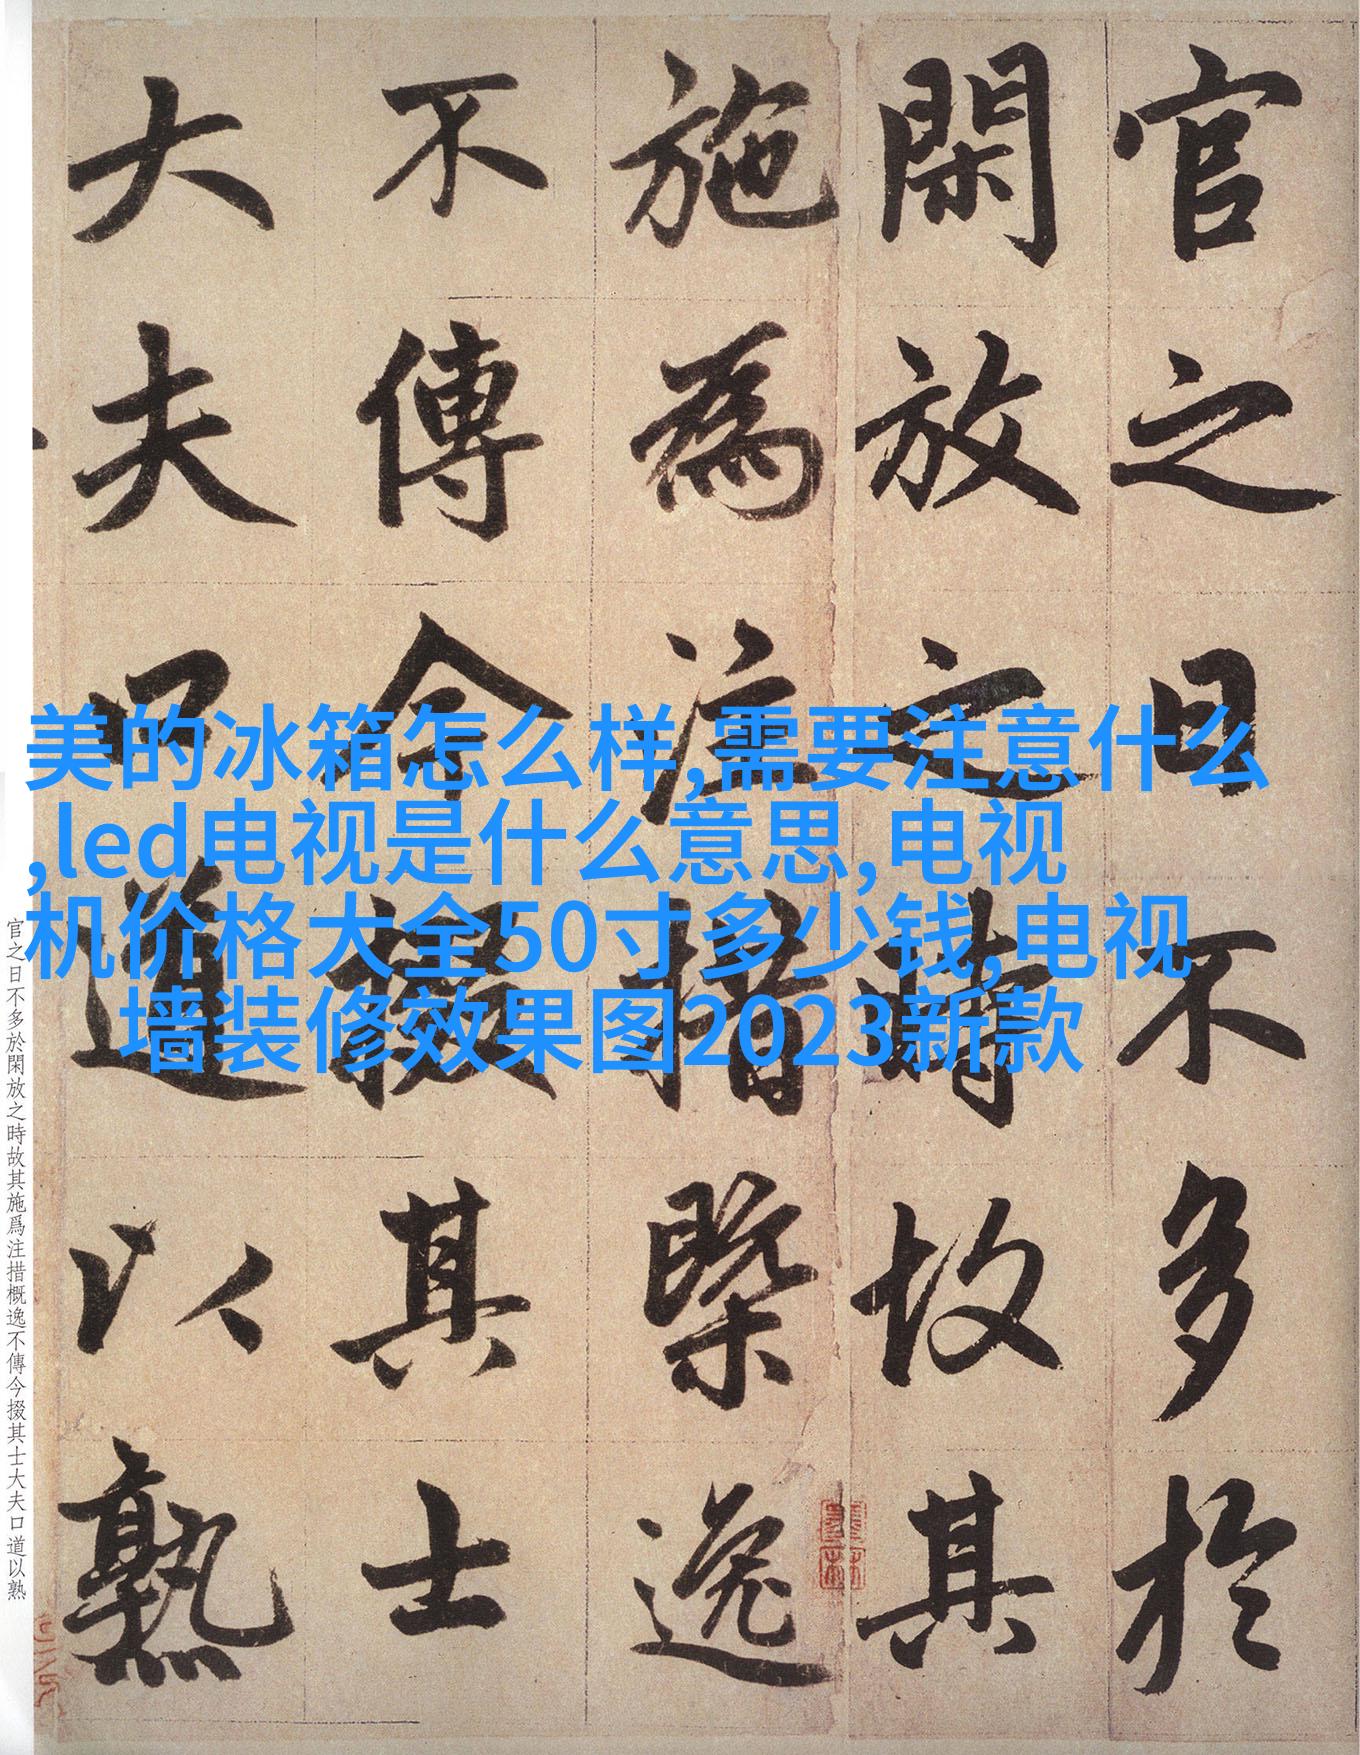 官之日不多於
閑放之時故其
施為注措槩逸
不傳今掇其士
大夫口道以熟
美的冰箱怎么样,需要注意什么
,led电视是什么意思,电视
机价格大全50寸多少钱,电视
墙装修效果图2023新款
官之日不多於閑放之時故其施爲注措概逸不傳今掇其士大夫口道以熟